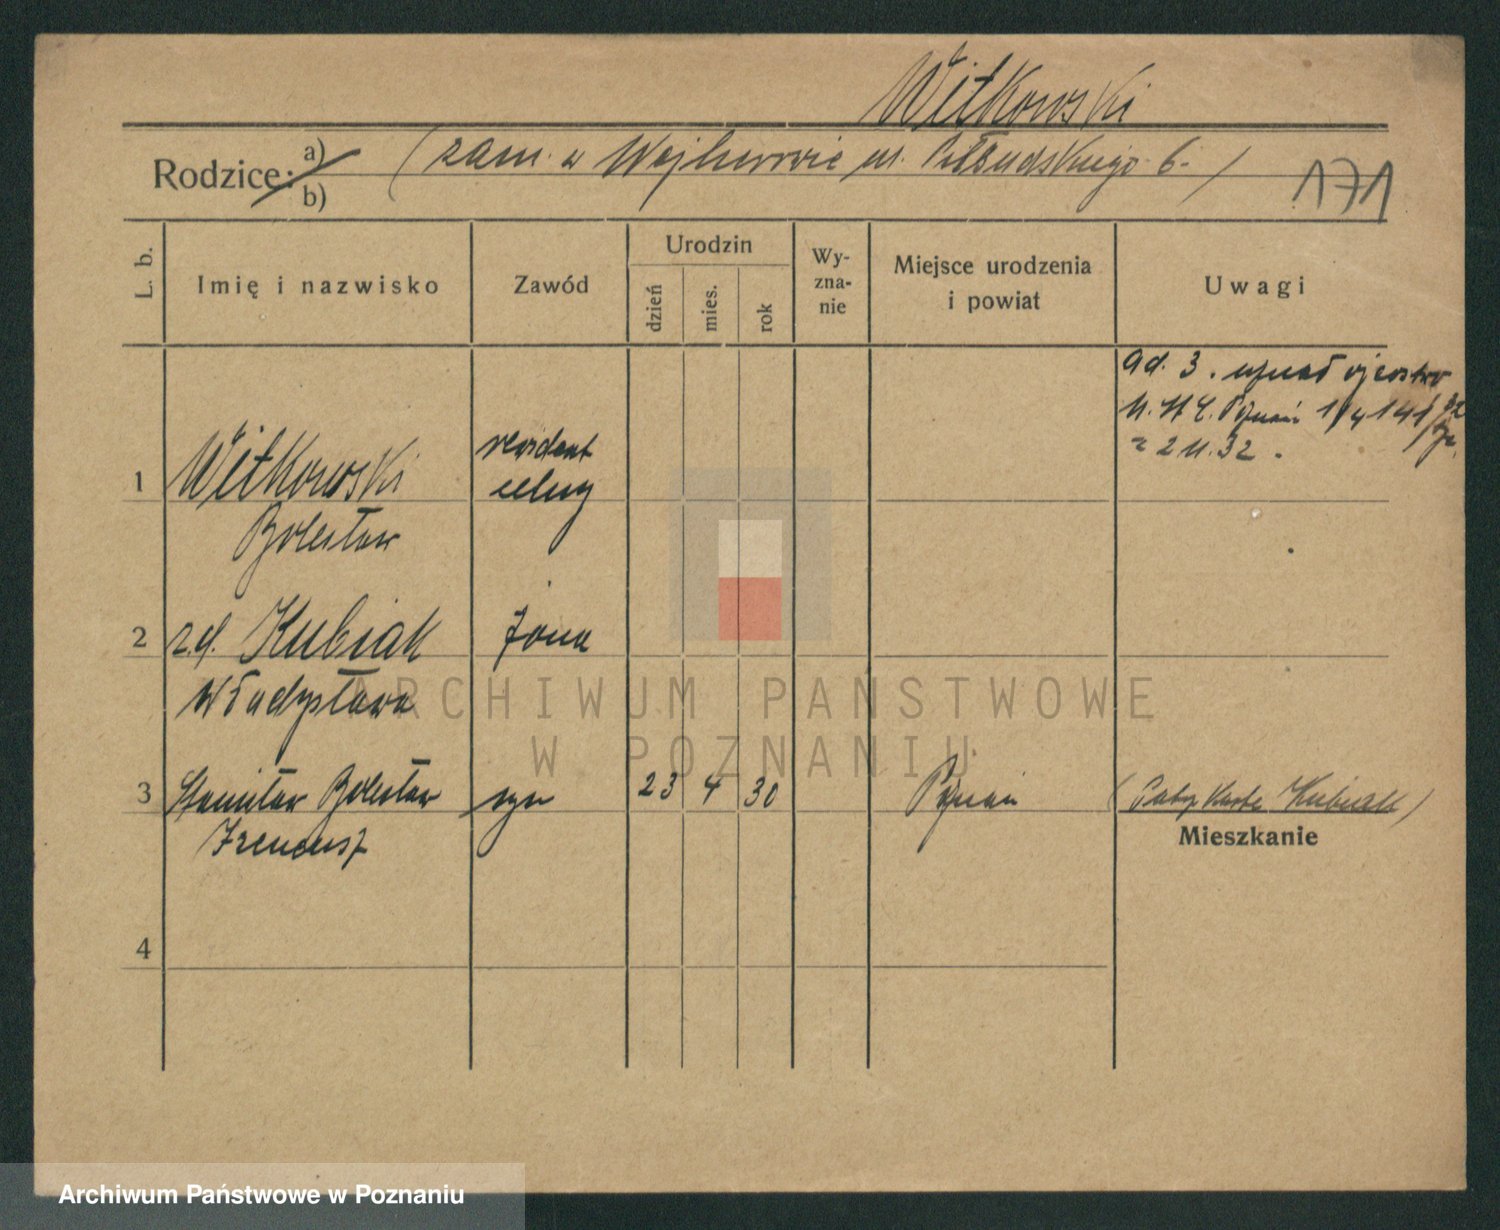 Witkowski
Rodzice: a) (zam. w Wejherowie ul. Piłsudskiego 6.)
b)
171
L. b.
Imię i nazwisko
Zawód
Urodzin
dzień
mies.
rok
Wy-
zna-
nie
Miejsce urodzenia
i powiat
Uwagi
ad. 3. uznał ojcostwo
Poznań
z 2 11. 32.
1 Witkowski
Bolesław
rewident
celny
2 z d. Kubiak żona
Władysława
ARCHIWUM PAŃSTWOWE
W POZNANIU
3 Stanisław Bolesław syn 23 4 30 Poznań (Patrz Karta Kubiak)
Ireneusz
Mieszkanie
4
Archiwum Państwowe w Poznaniu